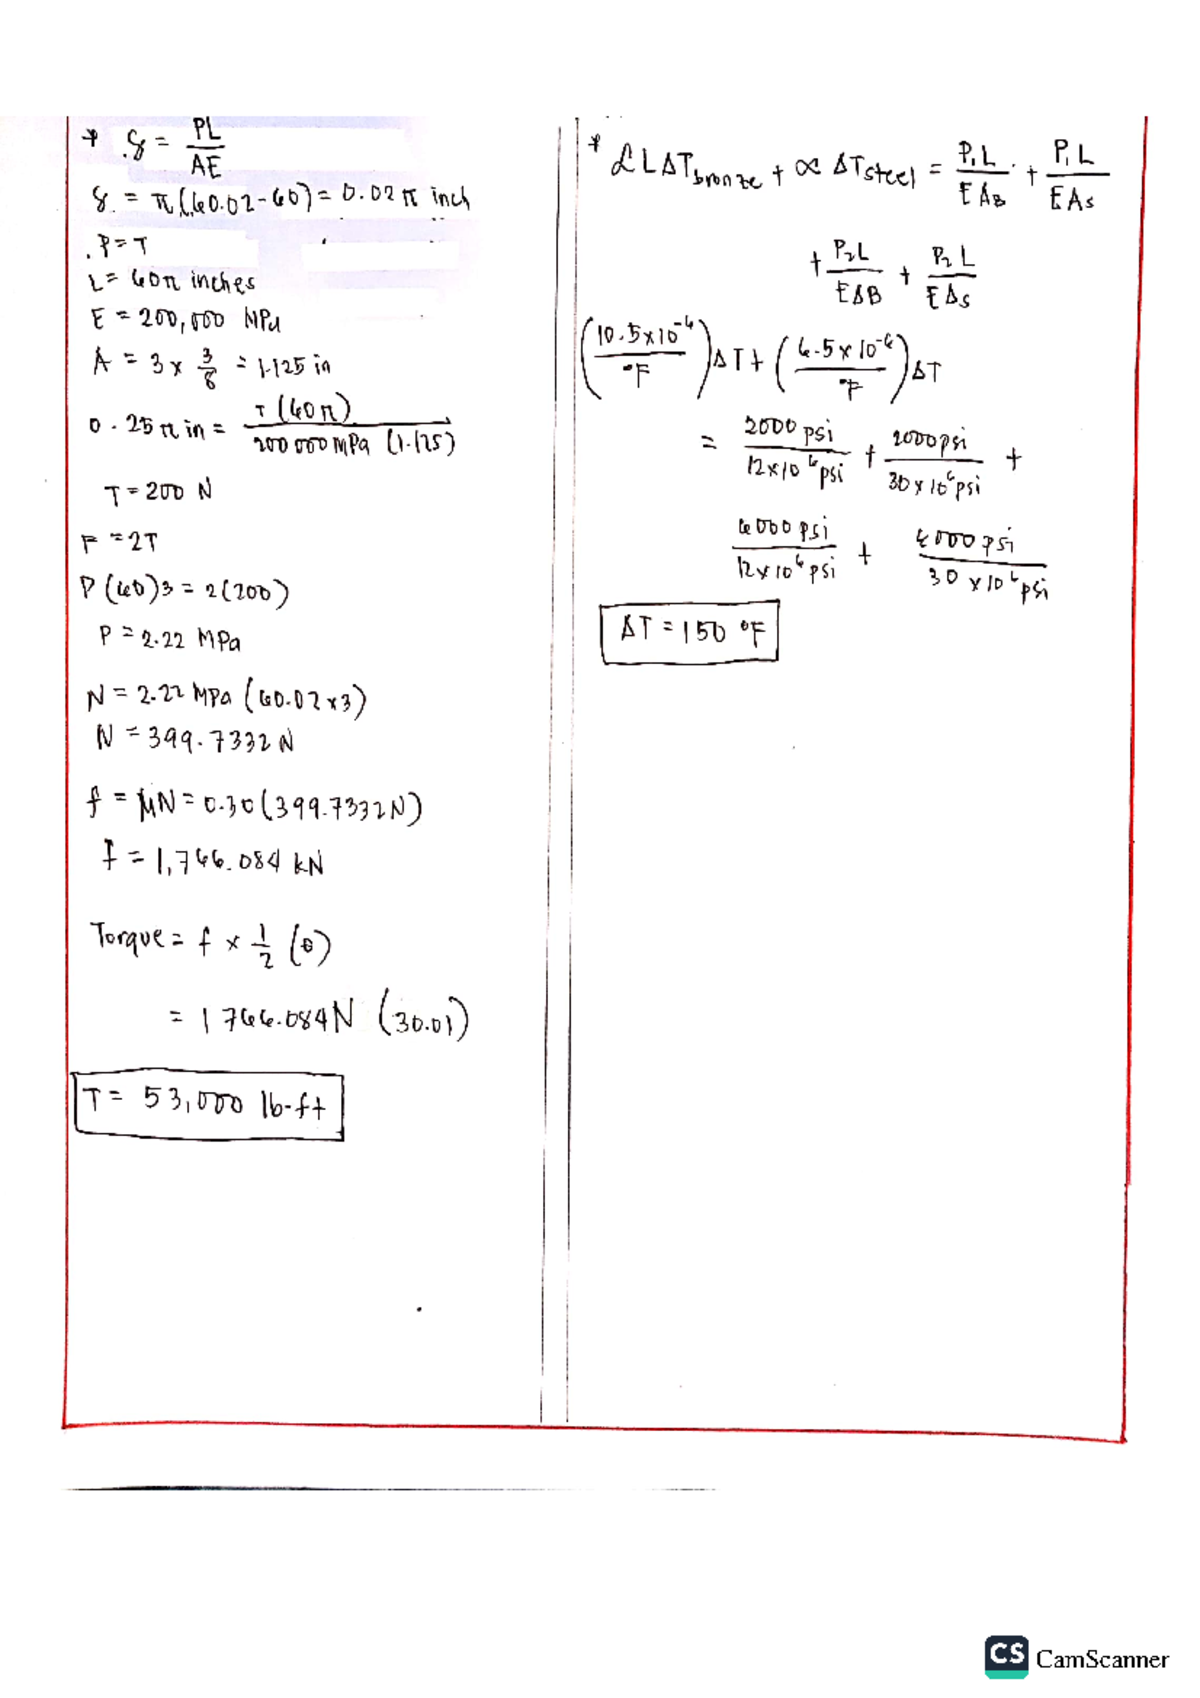 * δ = PL / AE
δ = π(60.02-60) = 0.02π inch
P=T
L= 60π inches
E = 200,000 MPa
A = 3 x 3/8 = 1.125 in
0.25π in = T(60π) / 200 000 MPa (1.125)
T=200 N
F = 2T
P(60)3 = 2(200)
P = 2.22 MPa
N = 2.22 MPa (60.02x3)
N = 399.7332 N
f = μN = 0.30(399.7332N)
f = 1,766.084 kN
Torque = f x 1/2 (θ)
= 1766.084N (30.01)
T= 53,000 lb-ft
* αLΔTbronze + ∝ ΔTsteel = P₁L / EAB + P₁L / EAs
+ P₂L / EAB + P₂L / EAs
(10.5x10⁻⁶ / °F) ΔT + (6.5x10⁻⁶ / °F) ΔT
= 2000 psi / 12x10⁶ psi + 2000psi / 30x10⁶psi +
6000psi / 12x10⁶psi + 6000psi / 30x10⁶psi
ΔT = 150 °F
CS CamScanner